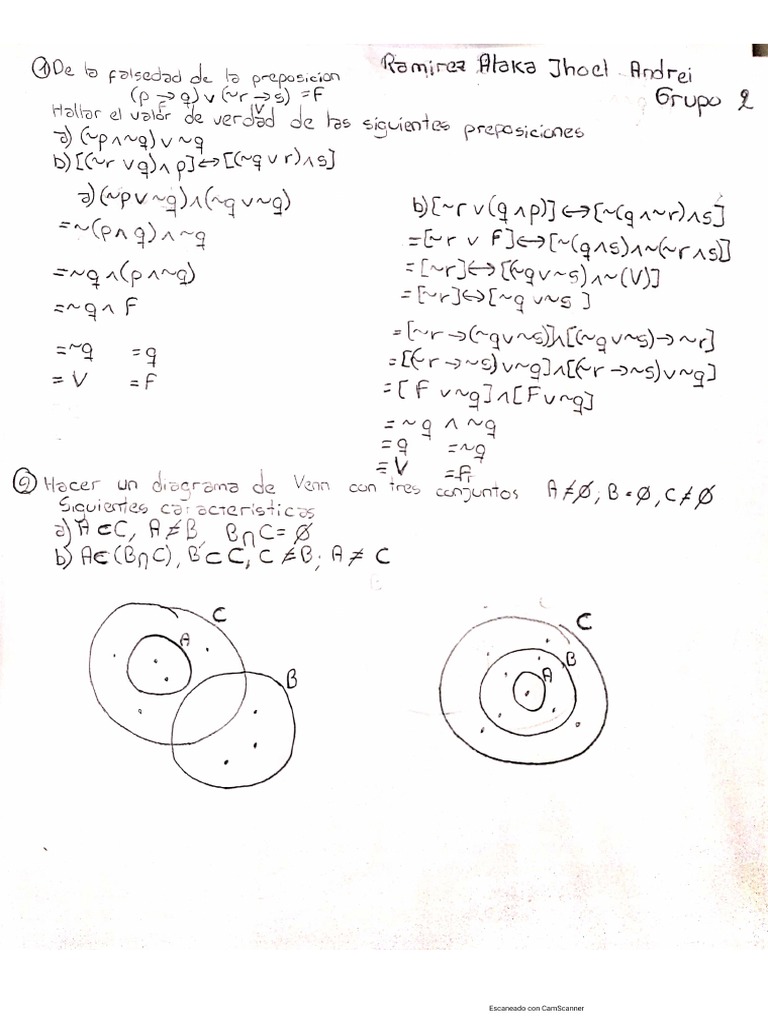 Ramirez Ataka Jhoel Andrei
Grupo 2
① De la falsedad de la preposicion
(p → q) ∨ (~r → s) = F
F V
Hallar el valor de verdad de las siguientes preposiciones
a) (~p ∧ ~q) ∨ ~q
b) [(~r ∨ q) ∧ p] ↔ [(~q ∨ r) ∧ s]
a) (~p ∨ ~q) ∧ (~q ∨ ~q)
= ~(p ∧ q) ∧ ~q
= ~q ∧ (p ∧ ~q)
= ~q ∧ F
= ~q = q
= V = F
b) [~r ∨ (q ∧ p)] ↔ [~(q ∧ ~r) ∧ s]
= [~r ∨ F] ↔ [~(q ∧ s) ∧ ~(~r ∧ s)]
= [~r] ↔ [(~q ∨ ~s) ∧ ~(V)]
= [~r] ↔ [~q ∨ ~s ]
= [~r → (~q ∨ ~s)] ∧ [(~q ∨ ~s) → ~r]
= [(~r → ~s) ∨ ~q] ∧ [(~r → ~s) ∨ ~q]
= [F ∨ ~q] ∧ [F ∨ ~q]
= ~q ∧ ~q
= q = ~q
= V = F
② Hacer un diagrama de Venn con tres conjuntos A ≠ Ø; B = Ø, C ≠ Ø
Siguientes caracteristicas
a) A ⊂ C, A ≠ B, B ∩ C = Ø
b) A ⊂ (B ∩ C), B ⊂ C, C ≠ B; A ≠ C
C
A
B
C
B
A
Escaneado con CamScanner